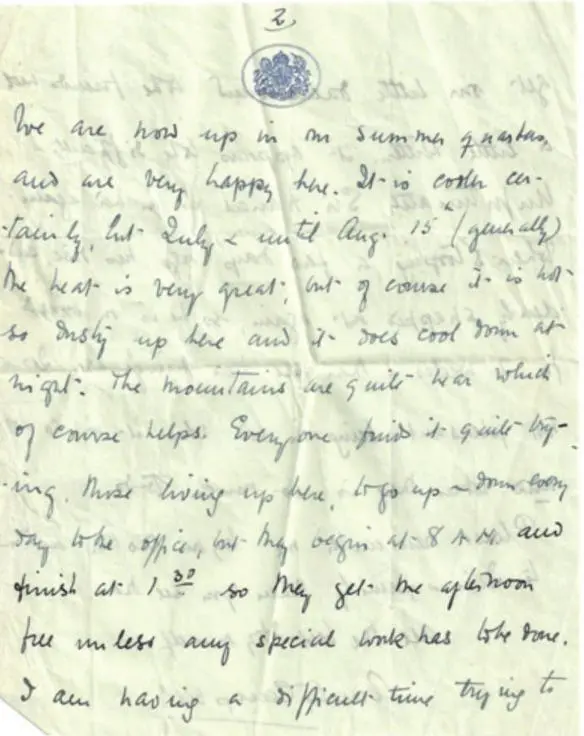 2.
We are now up in our summer quarters,
and are very happy here. It is cooler cer-
-tainly, but July & until Aug. 15 (generally)
the heat is very great, but of course it is not
so dusty up here and it does cool down at
night. The mountains are quite near which
of course helps. Everyone finds it quite try-
-ing, those living up here, to go up & down every
day to the office, but they begin at 8 A.M. and
finish at 1 30 so they get the afternoon
free unless any special work has to be done.
I am having a difficult time trying to